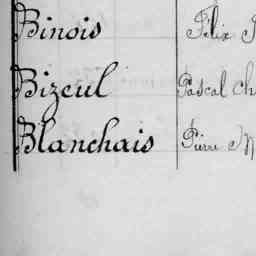 Binois Félix
Bizeul Pascal Ch
Blanchais Pierre M